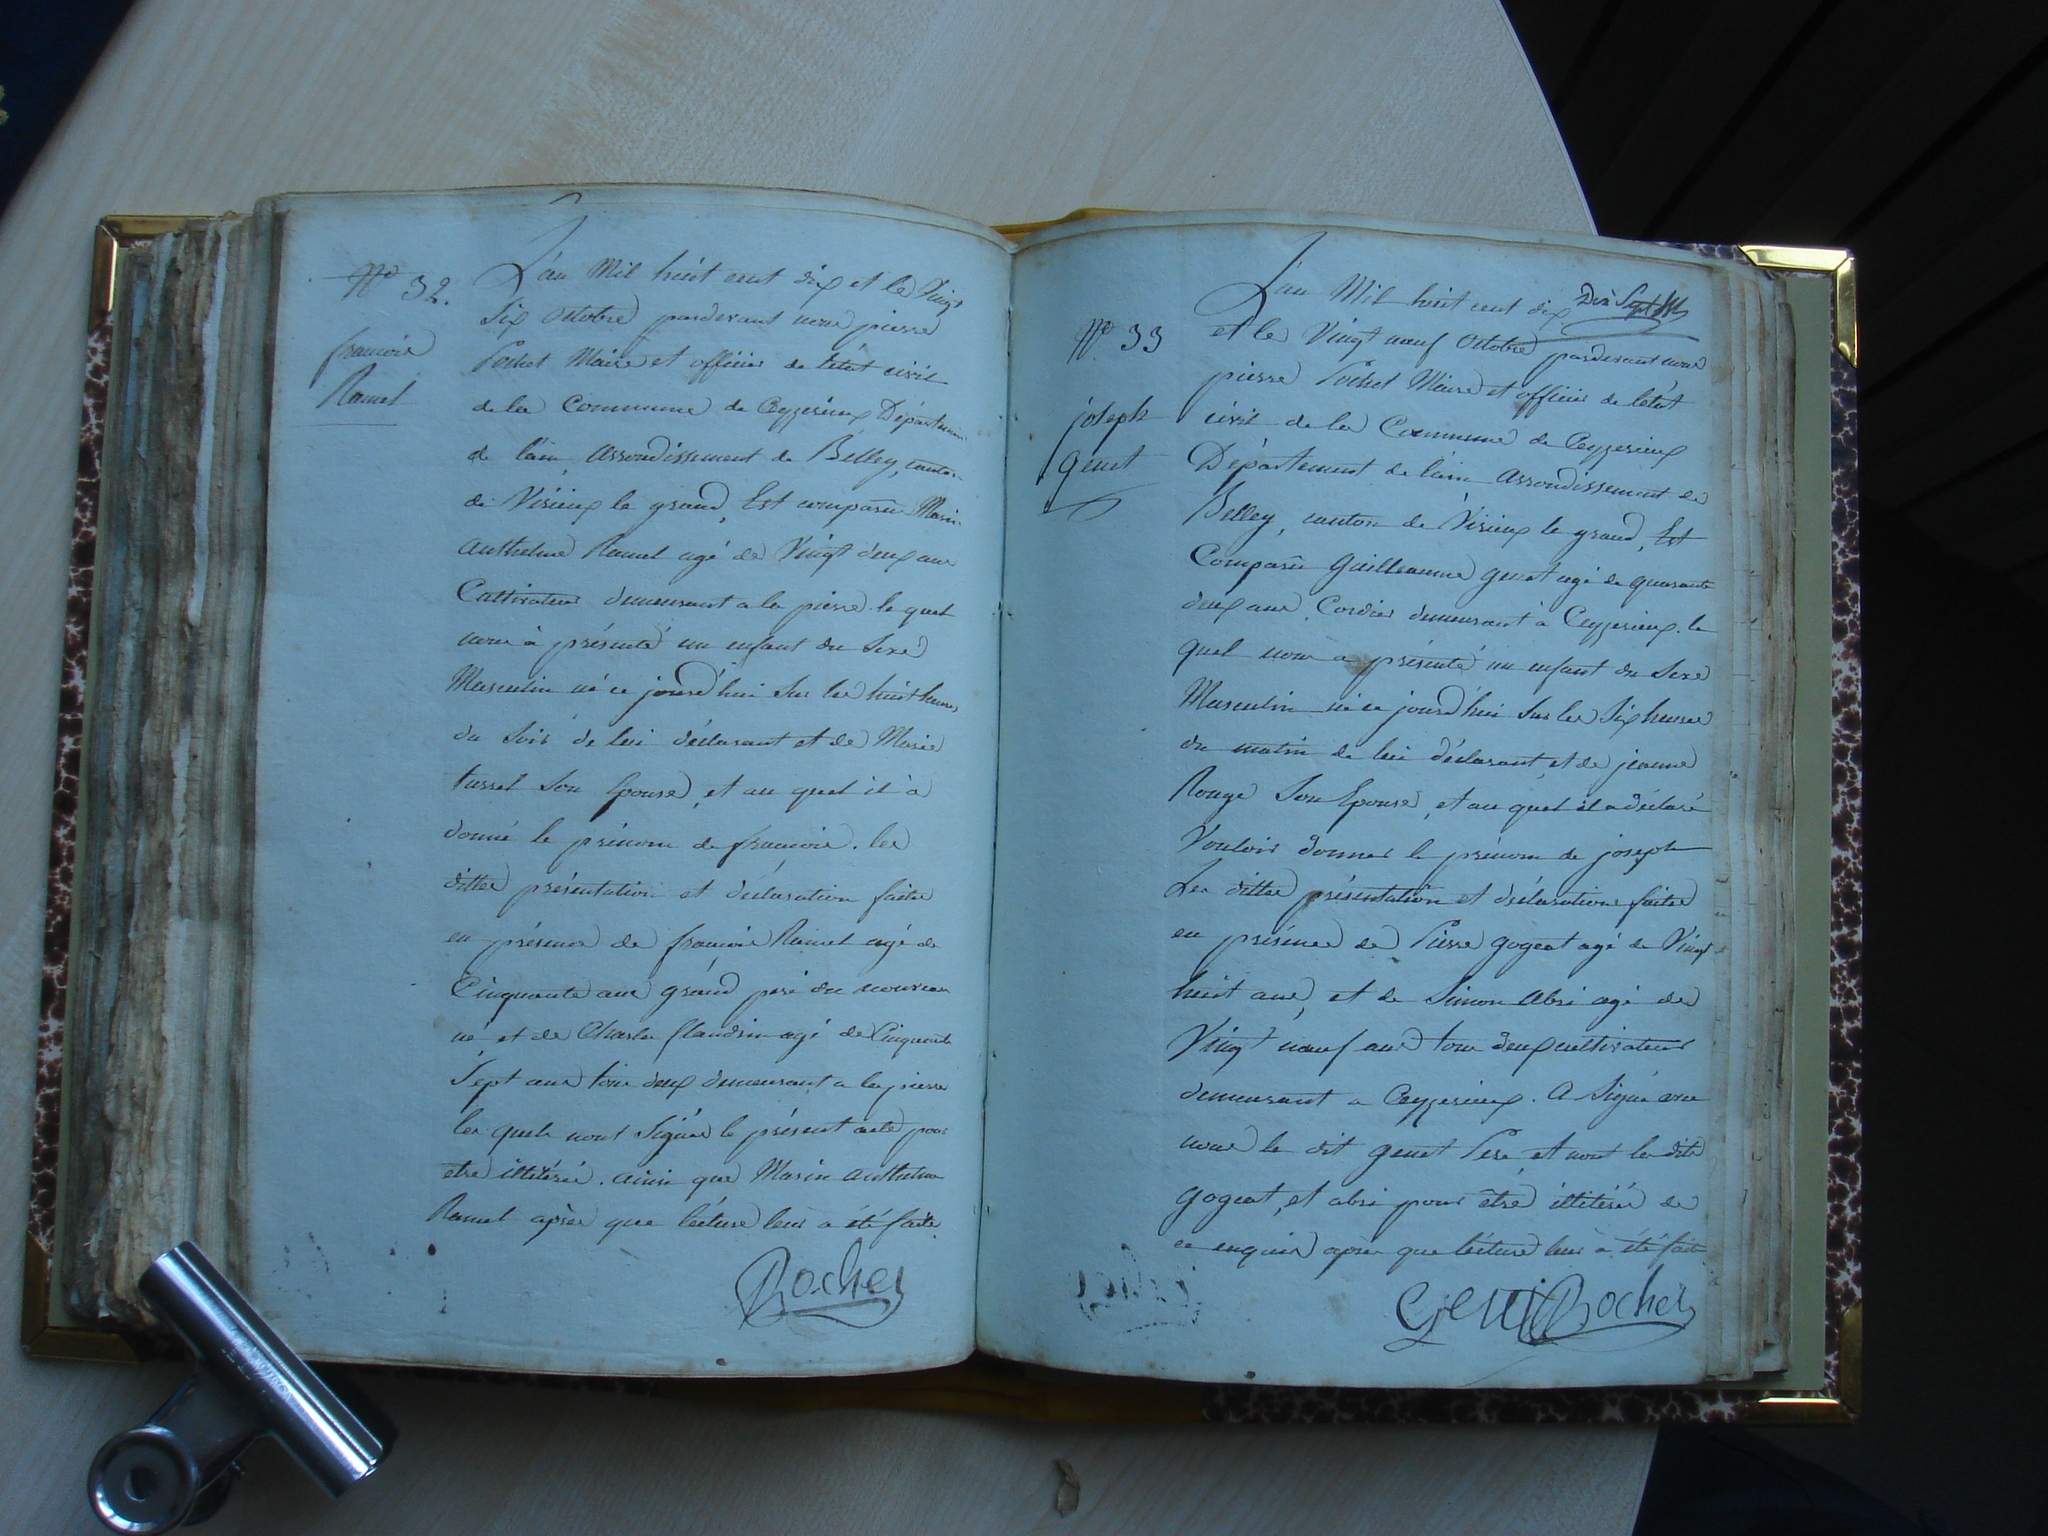 N.º 32.
françois
Ramel
L'an Mil huit cent dix et le Vingt
Six octobre pardevant nous pierre
Rochet Maire et officier de l'état civil
de la Commune de Ceyzerieux Département
de l'ain, arrondissement de Belley, canton
de Virieux le grand, Est comparû Marin
anthelme Ramel agé de Vingt deux ans
Cultivateur demeurant a la pierre. le quel
nous à présenté un enfant du Sexe
Masculin né ce jourd'hui Sur les huit heures
du Soir de lui déclarant et de Marie
tussel Son Epouse, et au quel il à
donné le prénom de françois. les
dittes présentation et déclaration faites
en présence de françois Ramel agé de
Cinquante ans grand pere du nouveau
né et de Charles flandrin agé de Cinquante
Sept ans tous deux demeurant a la pierre
les quels n'ont Signés le présent acte pour
etre illitérés. ainsi que Marin anthelme
Ramel après que lécture leur a été faite.
Rochet
Dix Sept
N.º 33
joseph
genet
L'an Mil huit cent dix
et le Vingt neuf octobre pardevant nous
pierre Rochet Maire et officier de l'état
civil de la Commune de Ceyzerieux
Département de l'ain arrondissement de
Belley, canton de Virieux le grand, Est
Comparû Guillaume genet agé de quarante
deux ans, Cordier demeurant à Ceyzerieux. le
quel nous a présenté un enfant du Sexe
Masculin né ce jourd'hui Sur les Six heures
du matin de lui déclarant, et de jeanne
Rouge Son Epouse, et au quel il a déclaré
Vouloir donner le prénom de joseph
Les dittes présentation et déclaration faites
en présence de Pierre gogeat agé de Vingt
huit ans, et de Simon abri agé de
Vingt neuf ans tous deux cultivateurs
demeurant a Ceyzerieux. A Signé avec
nous le dit genet Pere, et n'ont les dits
gogeat, et abri pour être illitérés de
ce enquis après que lécture leur à été faite
Genet Rochet